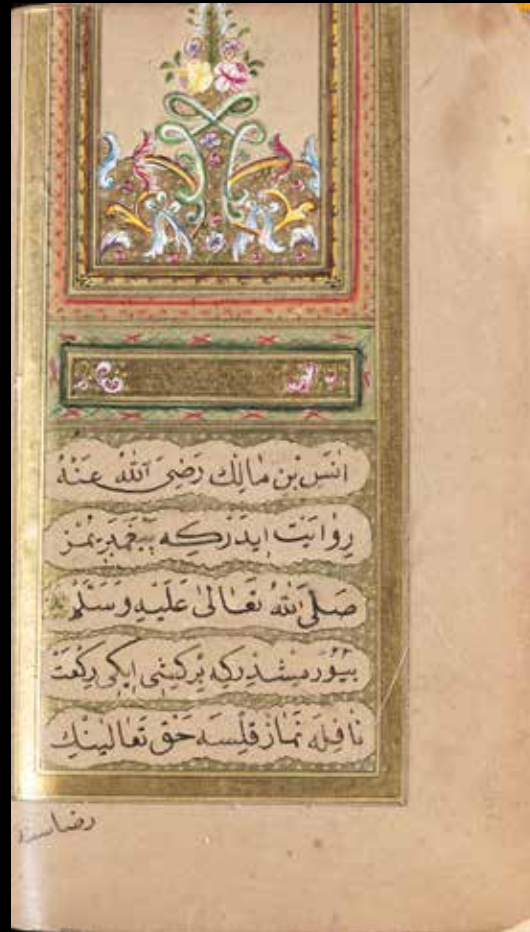 انَس بْن مٰالِك رَضِىَ اللّٰهُ عَنْهُ
رِوٰايَتْ ايدَرْكِه پَيْغَمْبَرِيمُز
صَلَّى اللّٰهُ تَعٰالىٰ عَلَيْهِ وَسَلَّمْ
بيُورمِشْدِركِه بْركِشِى ايكى رِكْعَتْ
نٰافِلَه نَمٰازْ قِلِسَه حَقْ تَعٰالينِكْ
رضاسنه